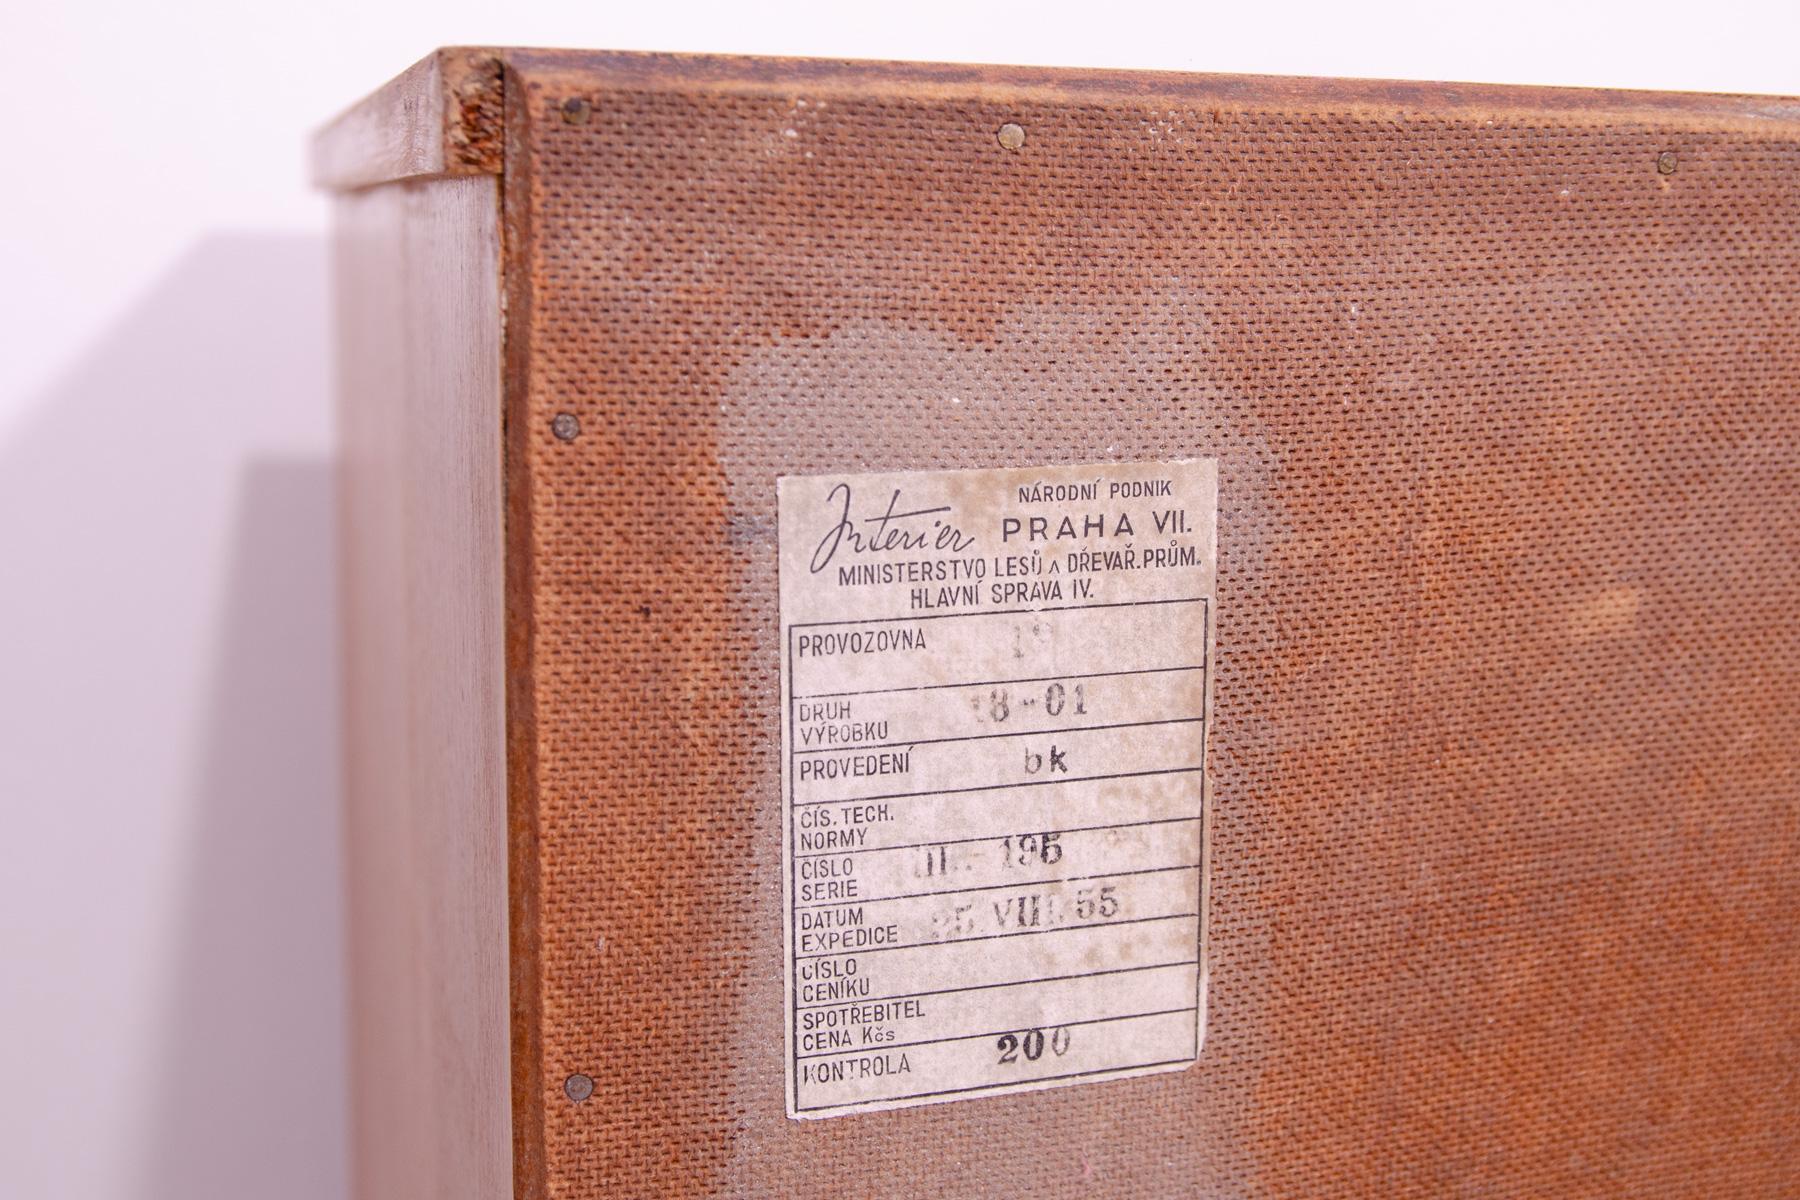 Interier NÁRODNÍ PODNIK
PRAHA VII.
MINISTERSTVO LESŮ A DŘEVAŘ.PRŮM.
HLAVNÍ SPRÁVA IV.
PROVOZOVNA
DRUH 18-01
VÝROBKU
PROVEDENÍ bk
ČÍS. TECH.
NORMY
ČÍSLO III.- 195
SERIE
DATUM 25. VIII. 55
EXPEDICE
ČÍSLO
CENÍKU
SPOTŘEBITEL
CENA Kčs 200
KONTROLA